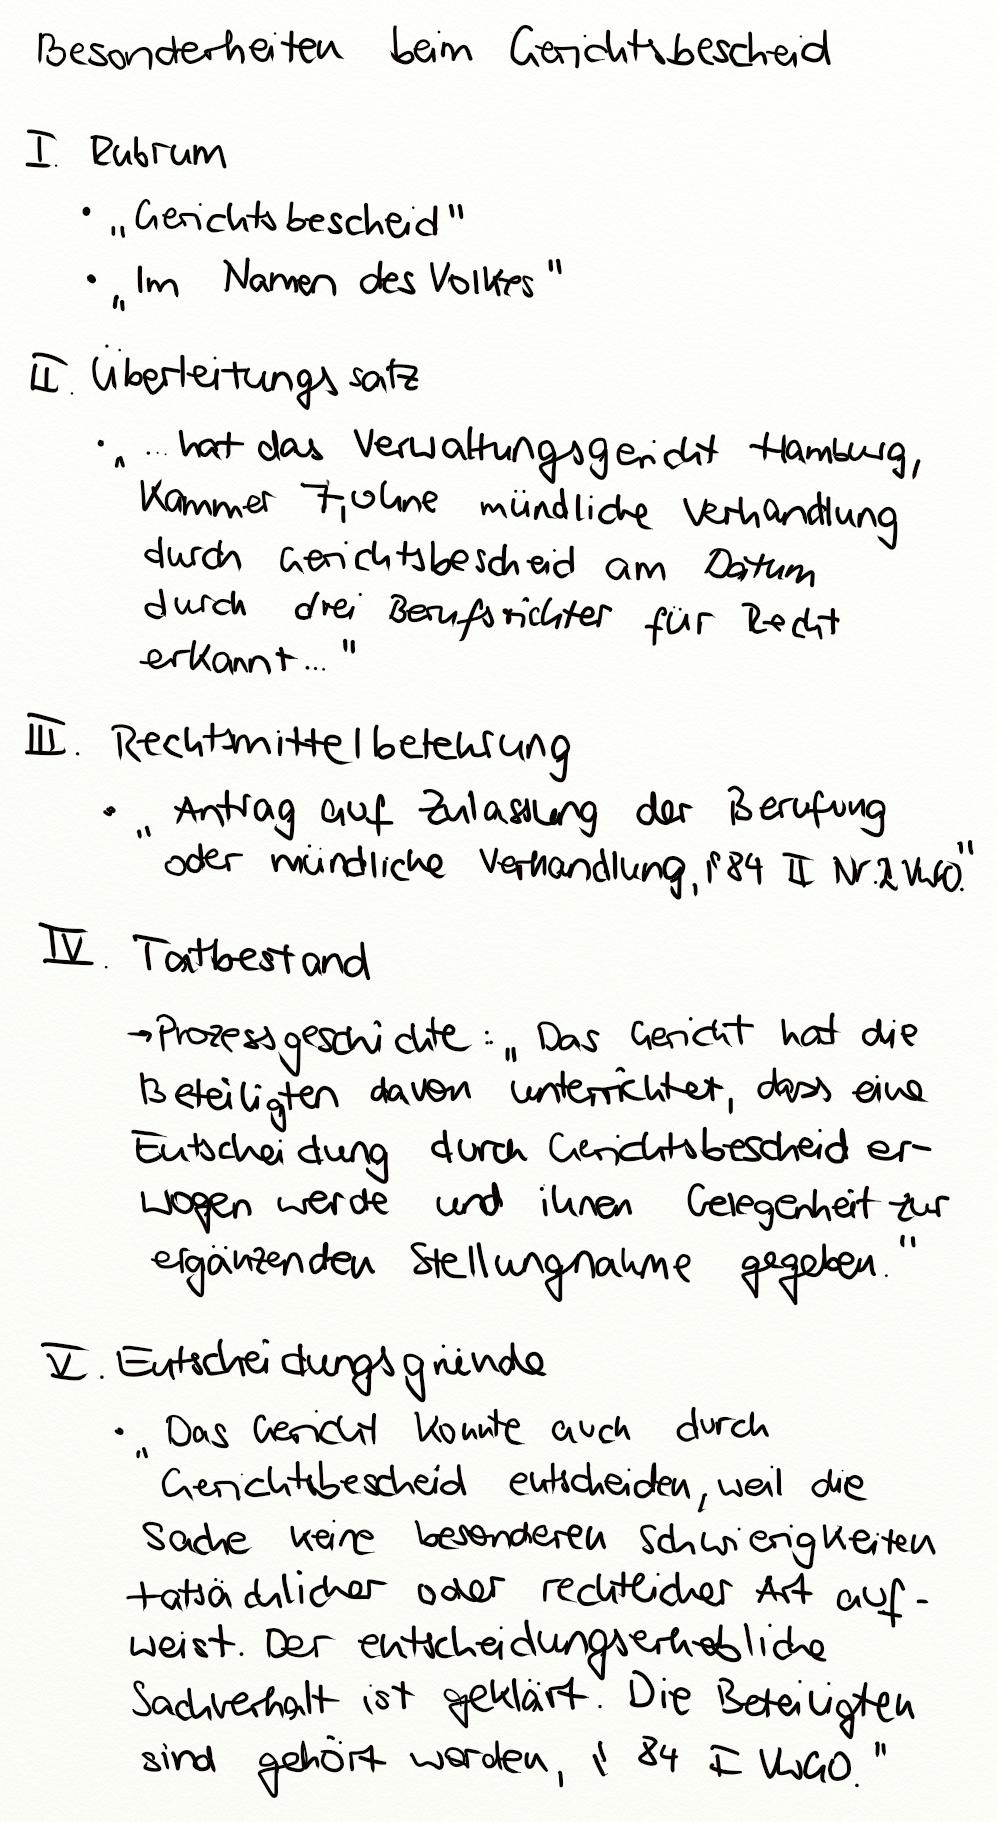 Besonderheiten beim Gerichtsbescheid
I. Rubrum
• „Gerichtsbescheid"
• „Im Namen des Volkes"
II. Überleitungssatz
• „... hat das Verwaltungsgericht Hamburg,
Kammer 7, ohne mündliche Verhandlung
durch Gerichtsbescheid am Datum
durch drei Berufsrichter für Recht
erkannt..."
III. Rechtsmittelbelehrung
• „Antrag auf Zulassung der Berufung
oder mündliche Verhandlung, § 84 II Nr. 2 VwGO."
IV. Tatbestand
→ Prozessgeschichte: „Das Gericht hat die
Beteiligten davon unterrichtet, dass eine
Entscheidung durch Gerichtsbescheid er-
wogen werde und ihnen Gelegenheit zur
ergänzenden Stellungnahme gegeben."
V. Entscheidungsgründe
• „Das Gericht konnte auch durch
Gerichtsbescheid entscheiden, weil die
Sache keine besonderen Schwierigkeiten
tatsächlicher oder rechtlicher Art auf-
weist. Der entscheidungserhebliche
Sachverhalt ist geklärt. Die Beteiligten
sind gehört worden, § 84 I VwGO."